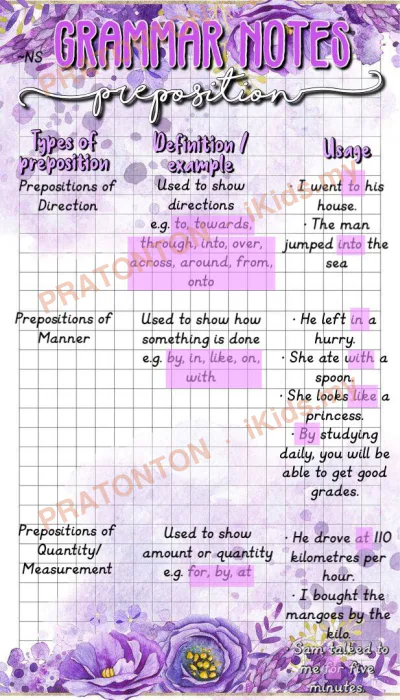 -NS
GRAMMAR NOTES
preposition
Types of
preposition
Definition /
example
Usage
Prepositions of
Direction
Used to show
directions
e.g. to, towards,
through, into, over,
across, around, from,
onto
· I went to his
house.
· The man
jumped into the
sea
Prepositions of
Manner
Used to show how
something is done
e.g. by, in, like, on,
with
· He left in a
hurry.
· She ate with a
spoon.
· She looks like a
princess.
· By studying
daily, you will be
able to get good
grades.
Prepositions of
Quantity/
Measurement
Used to show
amount or quantity
e.g. for, by, at
· He drove at 110
kilometres per
hour.
· I bought the
mangoes by the
kilo.
· Sam talked to
me for five
minutes.
PRATONTON
PRATONTON · iKids.my
PRATONTON · iKids.my